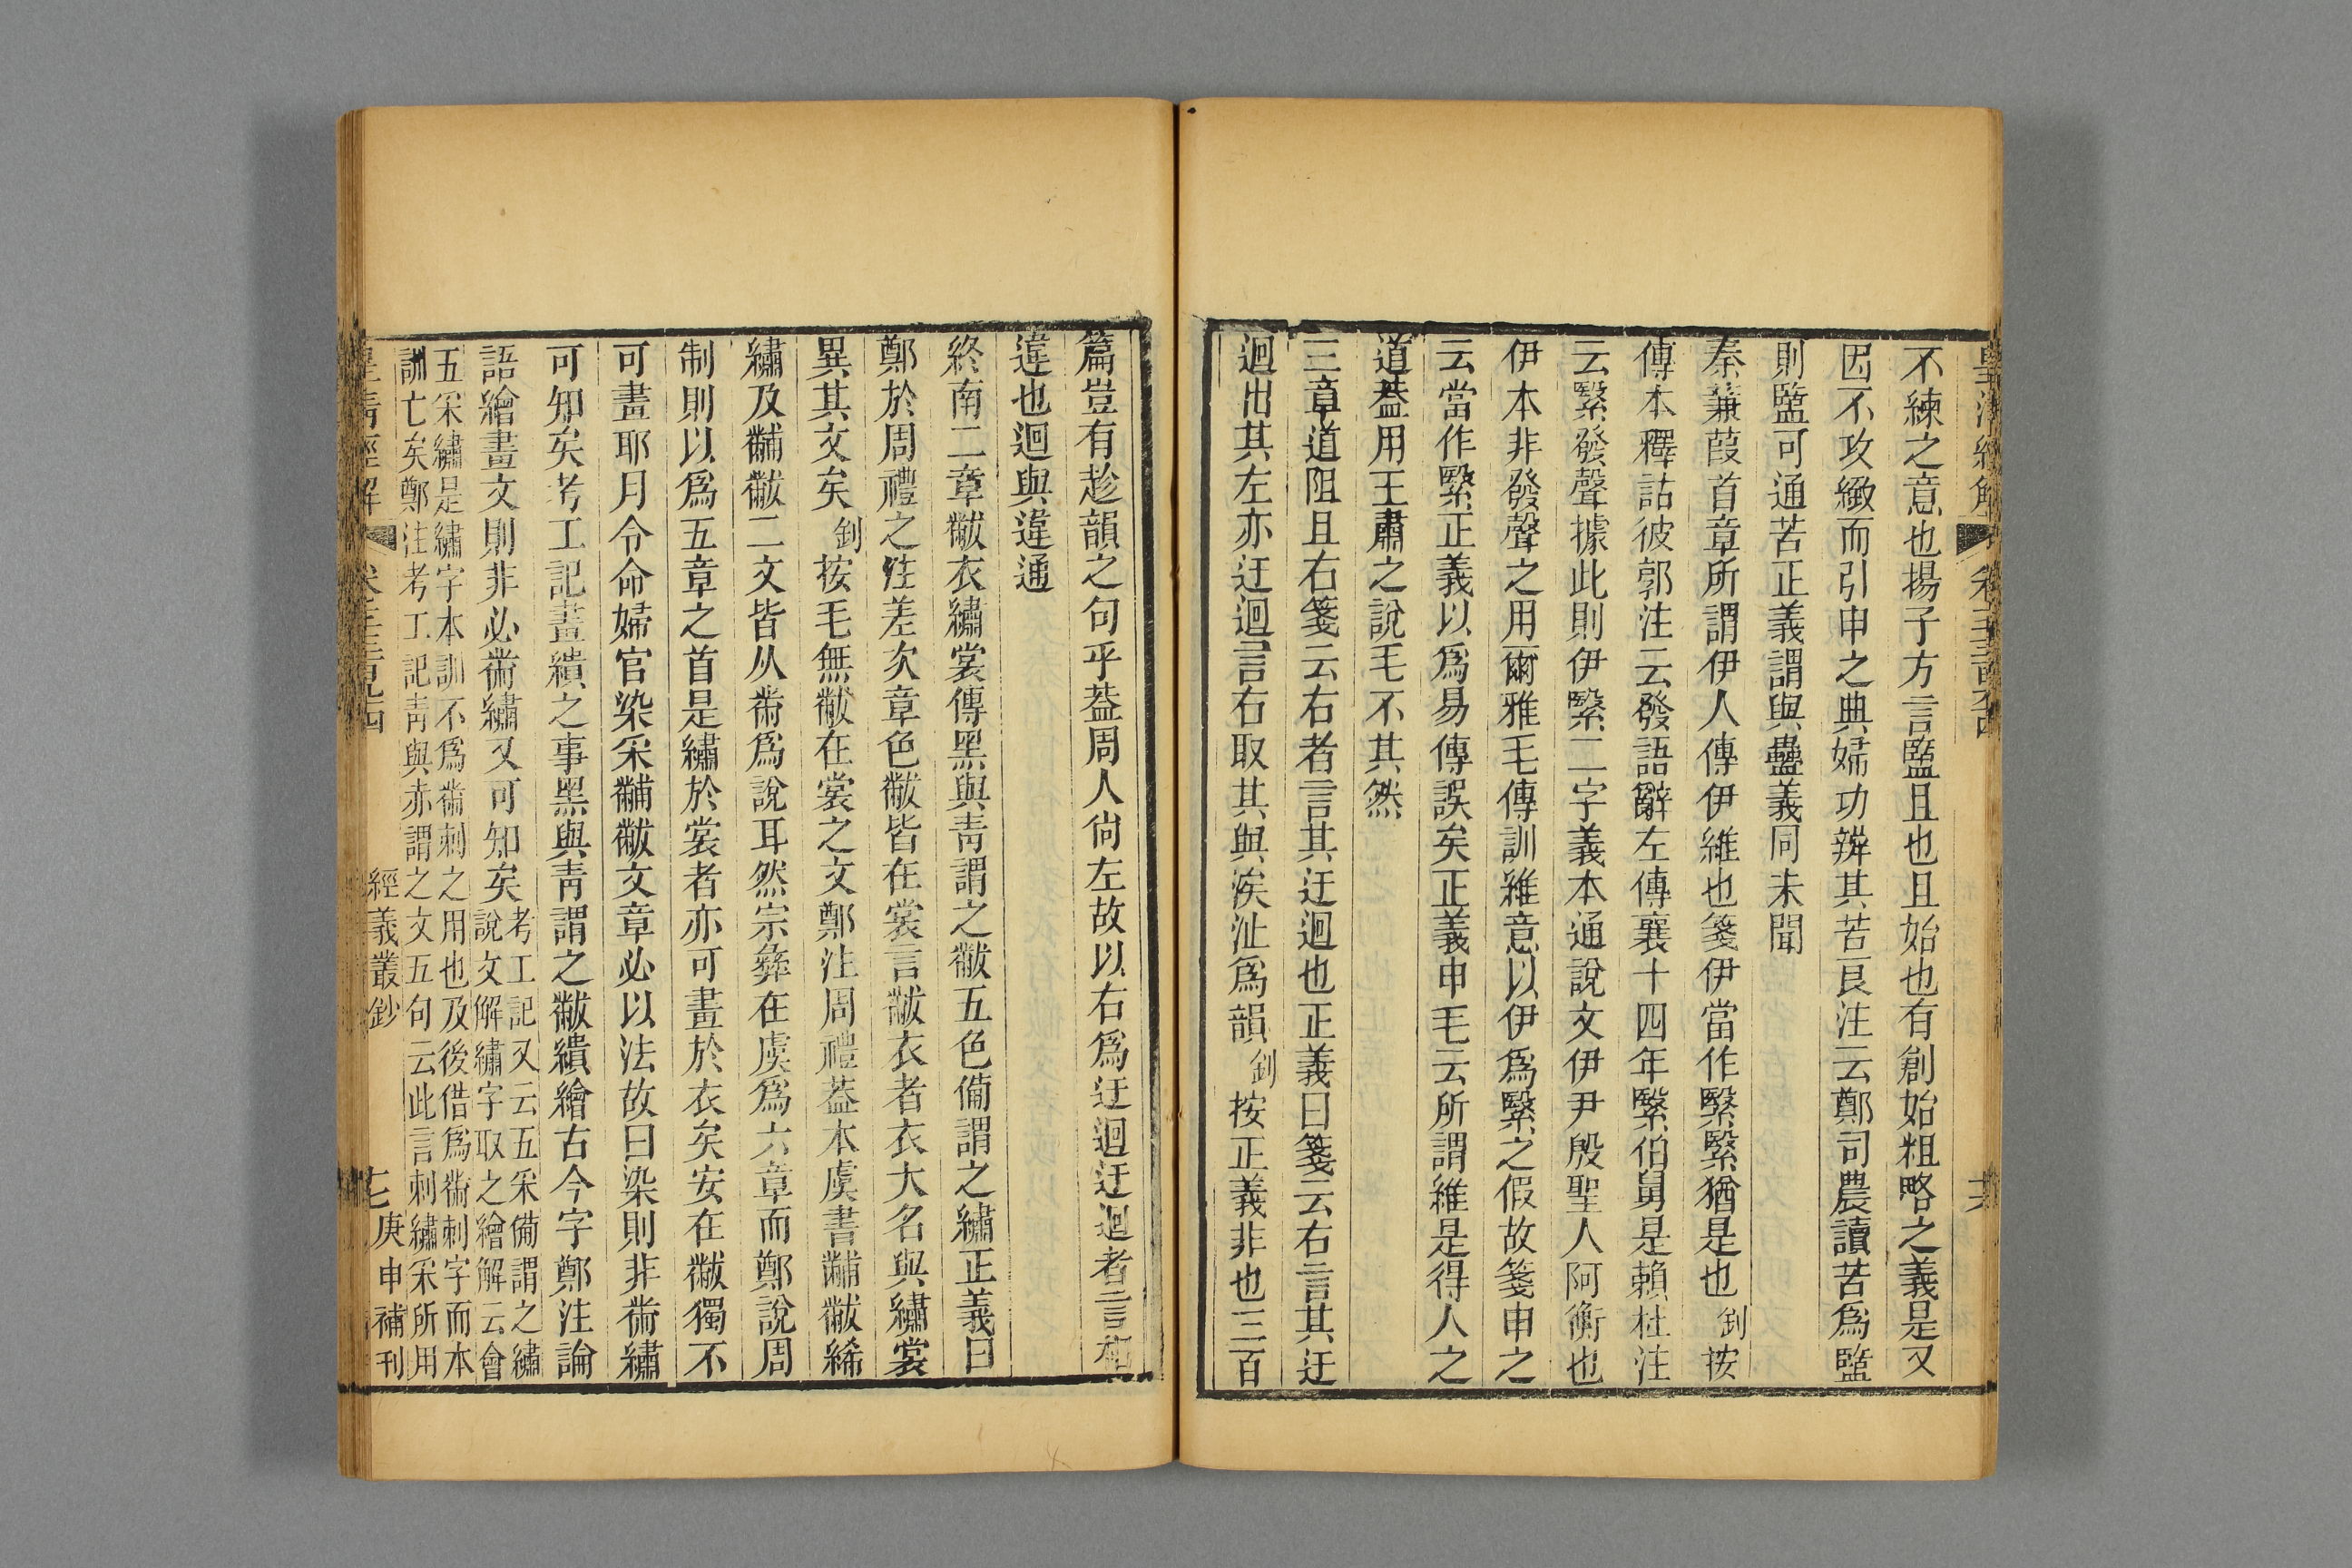 皇清經解
不練之意也揚子方言盬且也且始也有創始粗略之義是又
因不攻緻而引申之典婦功辨其苦良注云鄭司農讀苦爲盬
則盬可通苦正義謂與蠱義同未聞
秦蒹葭首章所謂伊人傳伊維也箋伊當作繄繄猶是也釗按
傳本釋詁彼郭注云發語辭左傳襄十四年繄伯舅是賴杜注
云繄發聲據此則伊繄二字義本通說文伊尹殷聖人阿衡也
伊本非發聲之用爾雅毛傳訓維意以伊爲繄之假故箋申之
云當作繄正義以爲易傳誤矣正義申毛云所謂維是得人之
道葢用王肅之說毛不其然
三章道阻且右箋云右者言其迂迴也正義曰箋云右言其迂
迴出其左亦迂迴言右取其與涘沚爲韻釗按正義非也三百
篇豈有趁韻之句乎葢周人尙左故以右爲迂迴迂迴者言相
違也迴與違通
終南二章黻衣繡裳傳黑與靑謂之黻五色備謂之繡正義曰
鄭於周禮之注差次章色黻皆在裳言黻衣者衣大名與繡裳
異其文矣釗按毛無黻在裳之文鄭注周禮葢本虞書黼黻絺
繡及黼黻二文皆从黹爲說耳然宗彝在虞爲六章而鄭說周
制則以爲五章之首是繡於裳者亦可畫於衣矣安在黻獨不
可畫耶月令命婦官染采黼黻文章必以法故曰染則非黹繡
可知矣考工記畫繢之事黑與靑謂之黻繢繪古今字鄭注論
語繪畫文則非必黹繡又可知矣考工記又云五采備謂之繡
說文解繡字取之繪解云會
五采繡是繡字本訓不爲黹刺之用也及後借爲黹刺字而本
訓亡矣鄭注考工記靑與赤謂之文五句云此言刺繡采所用
皇清經解
經義叢鈔
七
庚申補刊